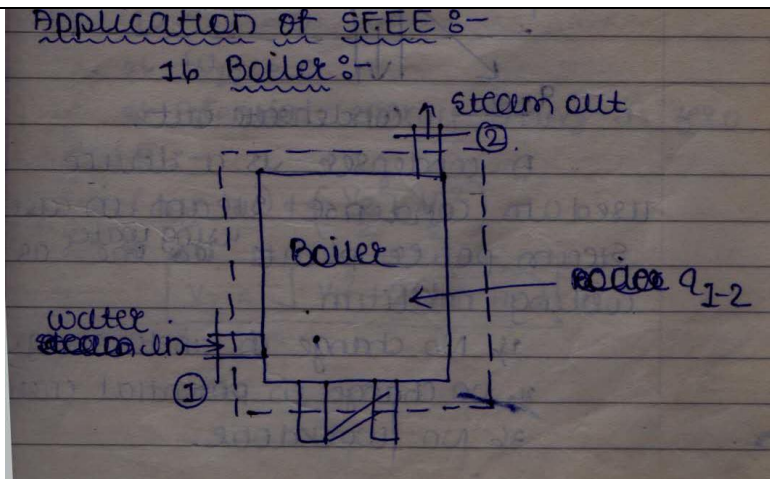 Application of SFEE :-
1) Boiler :-
steam out
②
Boiler
q1-2
water
in
①